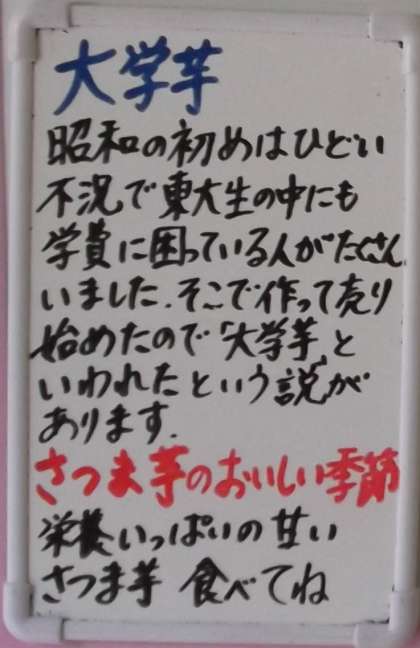 大学芋
昭和の初めはひどい
不況で東大生の中にも
学費に困っている人がたくさん
いました.そこで作って売り
始めたので「大学芋」と
いわれたという説が
あります.
さつま芋のおいしい季節
栄養いっぱいの甘い
さつま芋 食べてね